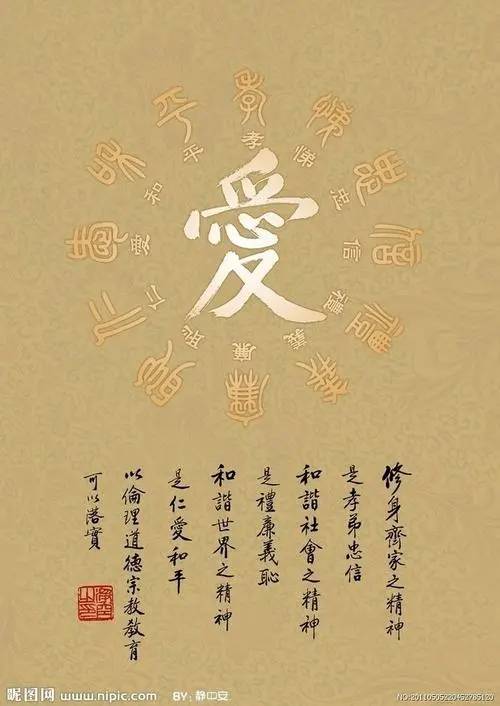 愛
孝
悌
忠
信
禮
義
廉
恥
仁
愛
和
平
孝
悌
忠
信
禮
義
廉
恥
仁
愛
和
平
修身齊家之精神
是孝弟忠信
和諧社會之精神
是禮廉義恥
和諧世界之精神
是仁愛和平
以倫理道德宗教教育
可以落實
昵图网 www.nipic.com BY: 静中安
NO:20110505220452785120